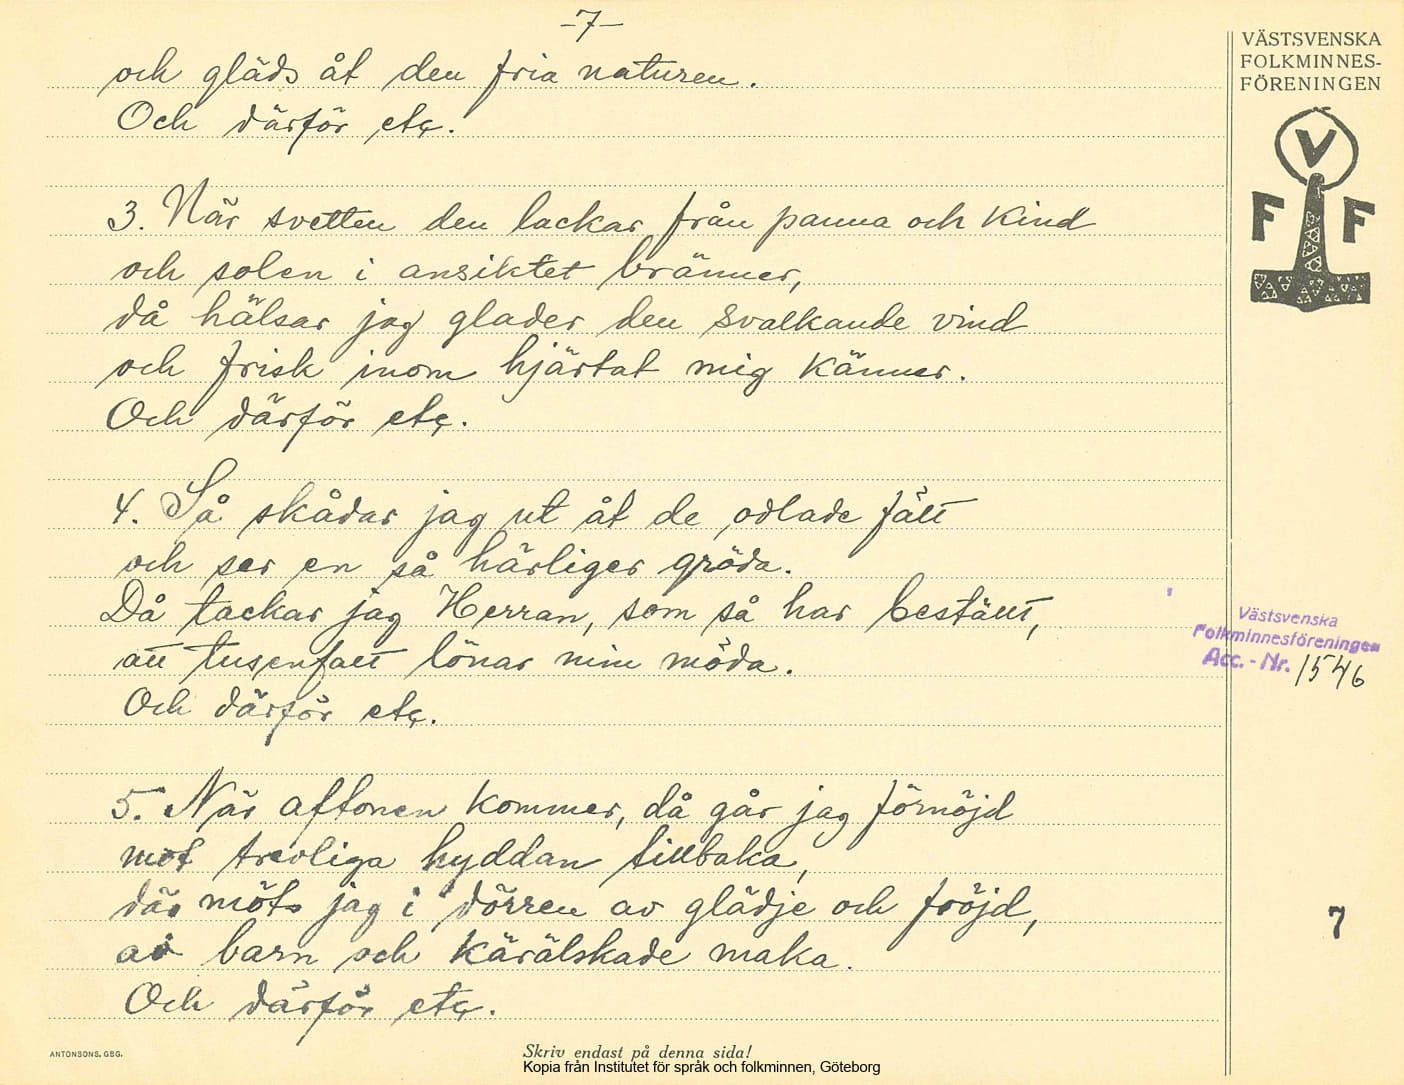 -7-
och gläds åt den fria naturen.
Och därför etc.
3. När svetten den lackar från panna och kind
och solen i ansiktet bränner,
då hälsar jag glader den svalkande vind
och frisk inom hjärtat mig känner.
Och därför etc.
4. Så skådar jag ut åt de odlade fält
och ser en så härliger gröda.
Då tackar jag Herran, som så har bestält,
att tusenfalt lönas min möda.
Och därför etc.
5. När aftonen kommer, då går jag förnöjd
mot trevliga hyddan tillbaka,
där möts jag i dörren av glädje och fröjd,
av barn och kärälskade maka.
Och därför etc.
VÄSTSVENSKA
FOLKMINNES-
FÖRENINGEN
V
F F
Västsvenska
Folkminnesföreningen
Acc.-Nr. 1546
7
ANTONSONS, GBG.
Skriv endast på denna sida!
Kopia från Institutet för språk och folkminnen, Göteborg